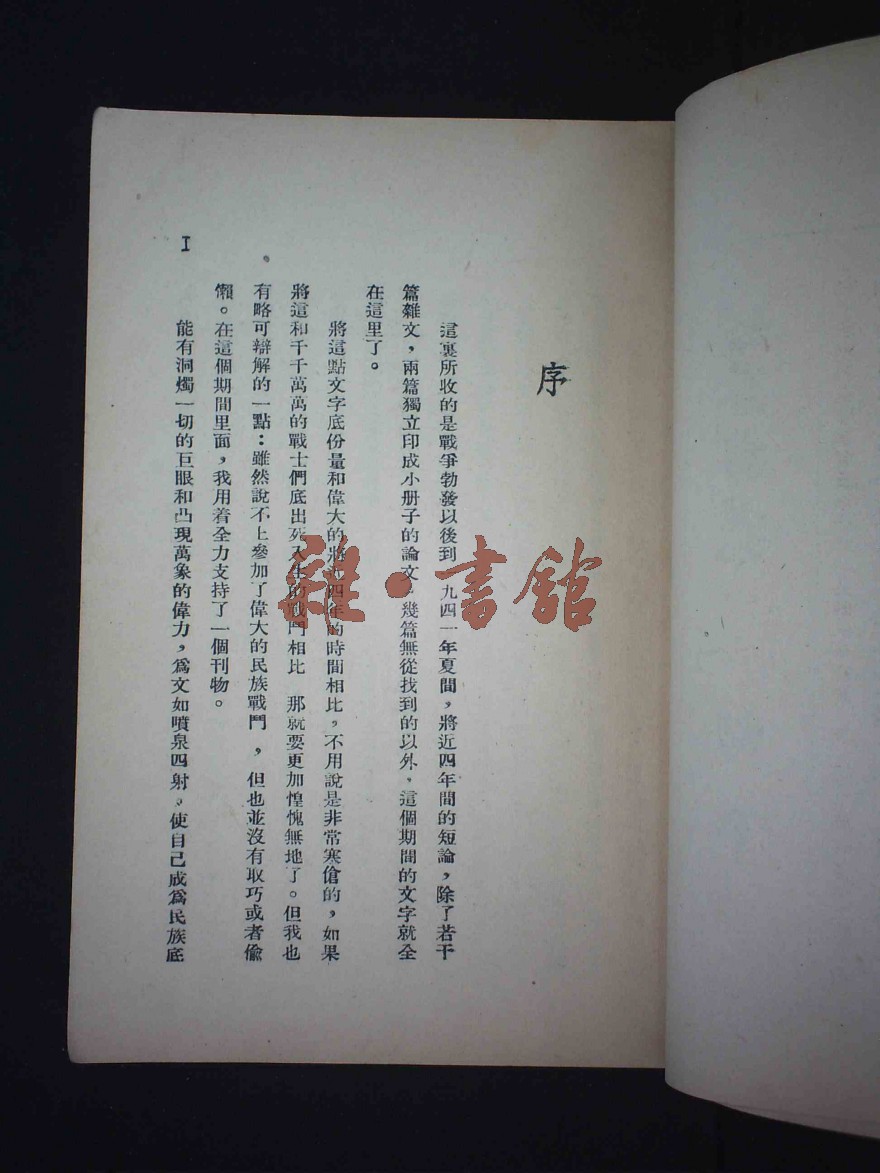 序
這裏所收的是戰爭勃發以後到 九四一年夏間，將近四年間的短論，除了若干
篇雜文，兩篇獨立印成小册子的論文，幾篇無從找到的以外，這個期間的文字就全
在這里了。
將這點文字底份量和偉大的將近四年的時間相比，不用說是非常寒傖的，如果
將這和千千萬萬的戰士們底出死入生的戰鬥相比 那就要更加惶愧無地了。但我也
有略可辯解的一點：雖然說不上參加了偉大的民族戰鬥，但也並沒有取巧或者偷
懶。在這個期間里面，我用着全力支持了一個刊物。
能有洞燭一切的巨眼和凸現萬象的偉力，爲文如噴泉四射，使自己成爲民族底
I
雜·書館